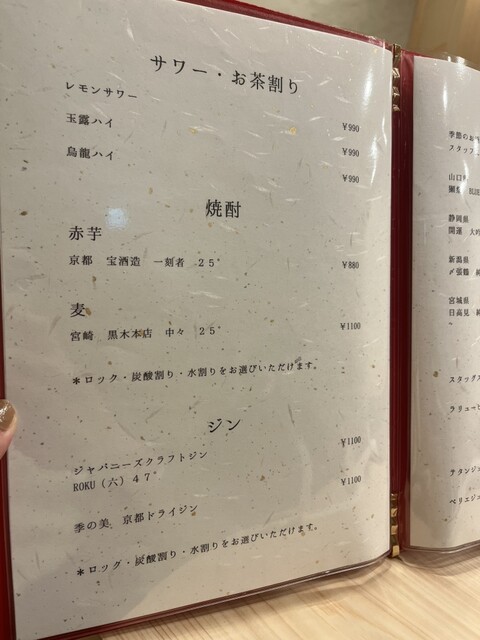 サワー・お茶割り
レモンサワー ¥990
玉露ハイ ¥990
烏龍ハイ ¥990
焼酎
赤芋
京都 宝酒造 一刻者 25° ¥880
麦
宮崎 黒木本店 中々 25° ¥1100
*ロック・炭酸割り・水割りをお選びいただけます。
ジン
ジャパニーズクラフトジン ¥1100
ROKU(六)47°
季の美 京都ドライジン ¥1100
*ロック・炭酸割り・水割りをお選びいただけます。
季節のお
スタッフ
山口
獺祭
静岡県
開運 大吟
新潟県
〆張鶴 純
宮城県
日高見 純
スタッグス
ラリュー
テタンジェ
ペリエジュ